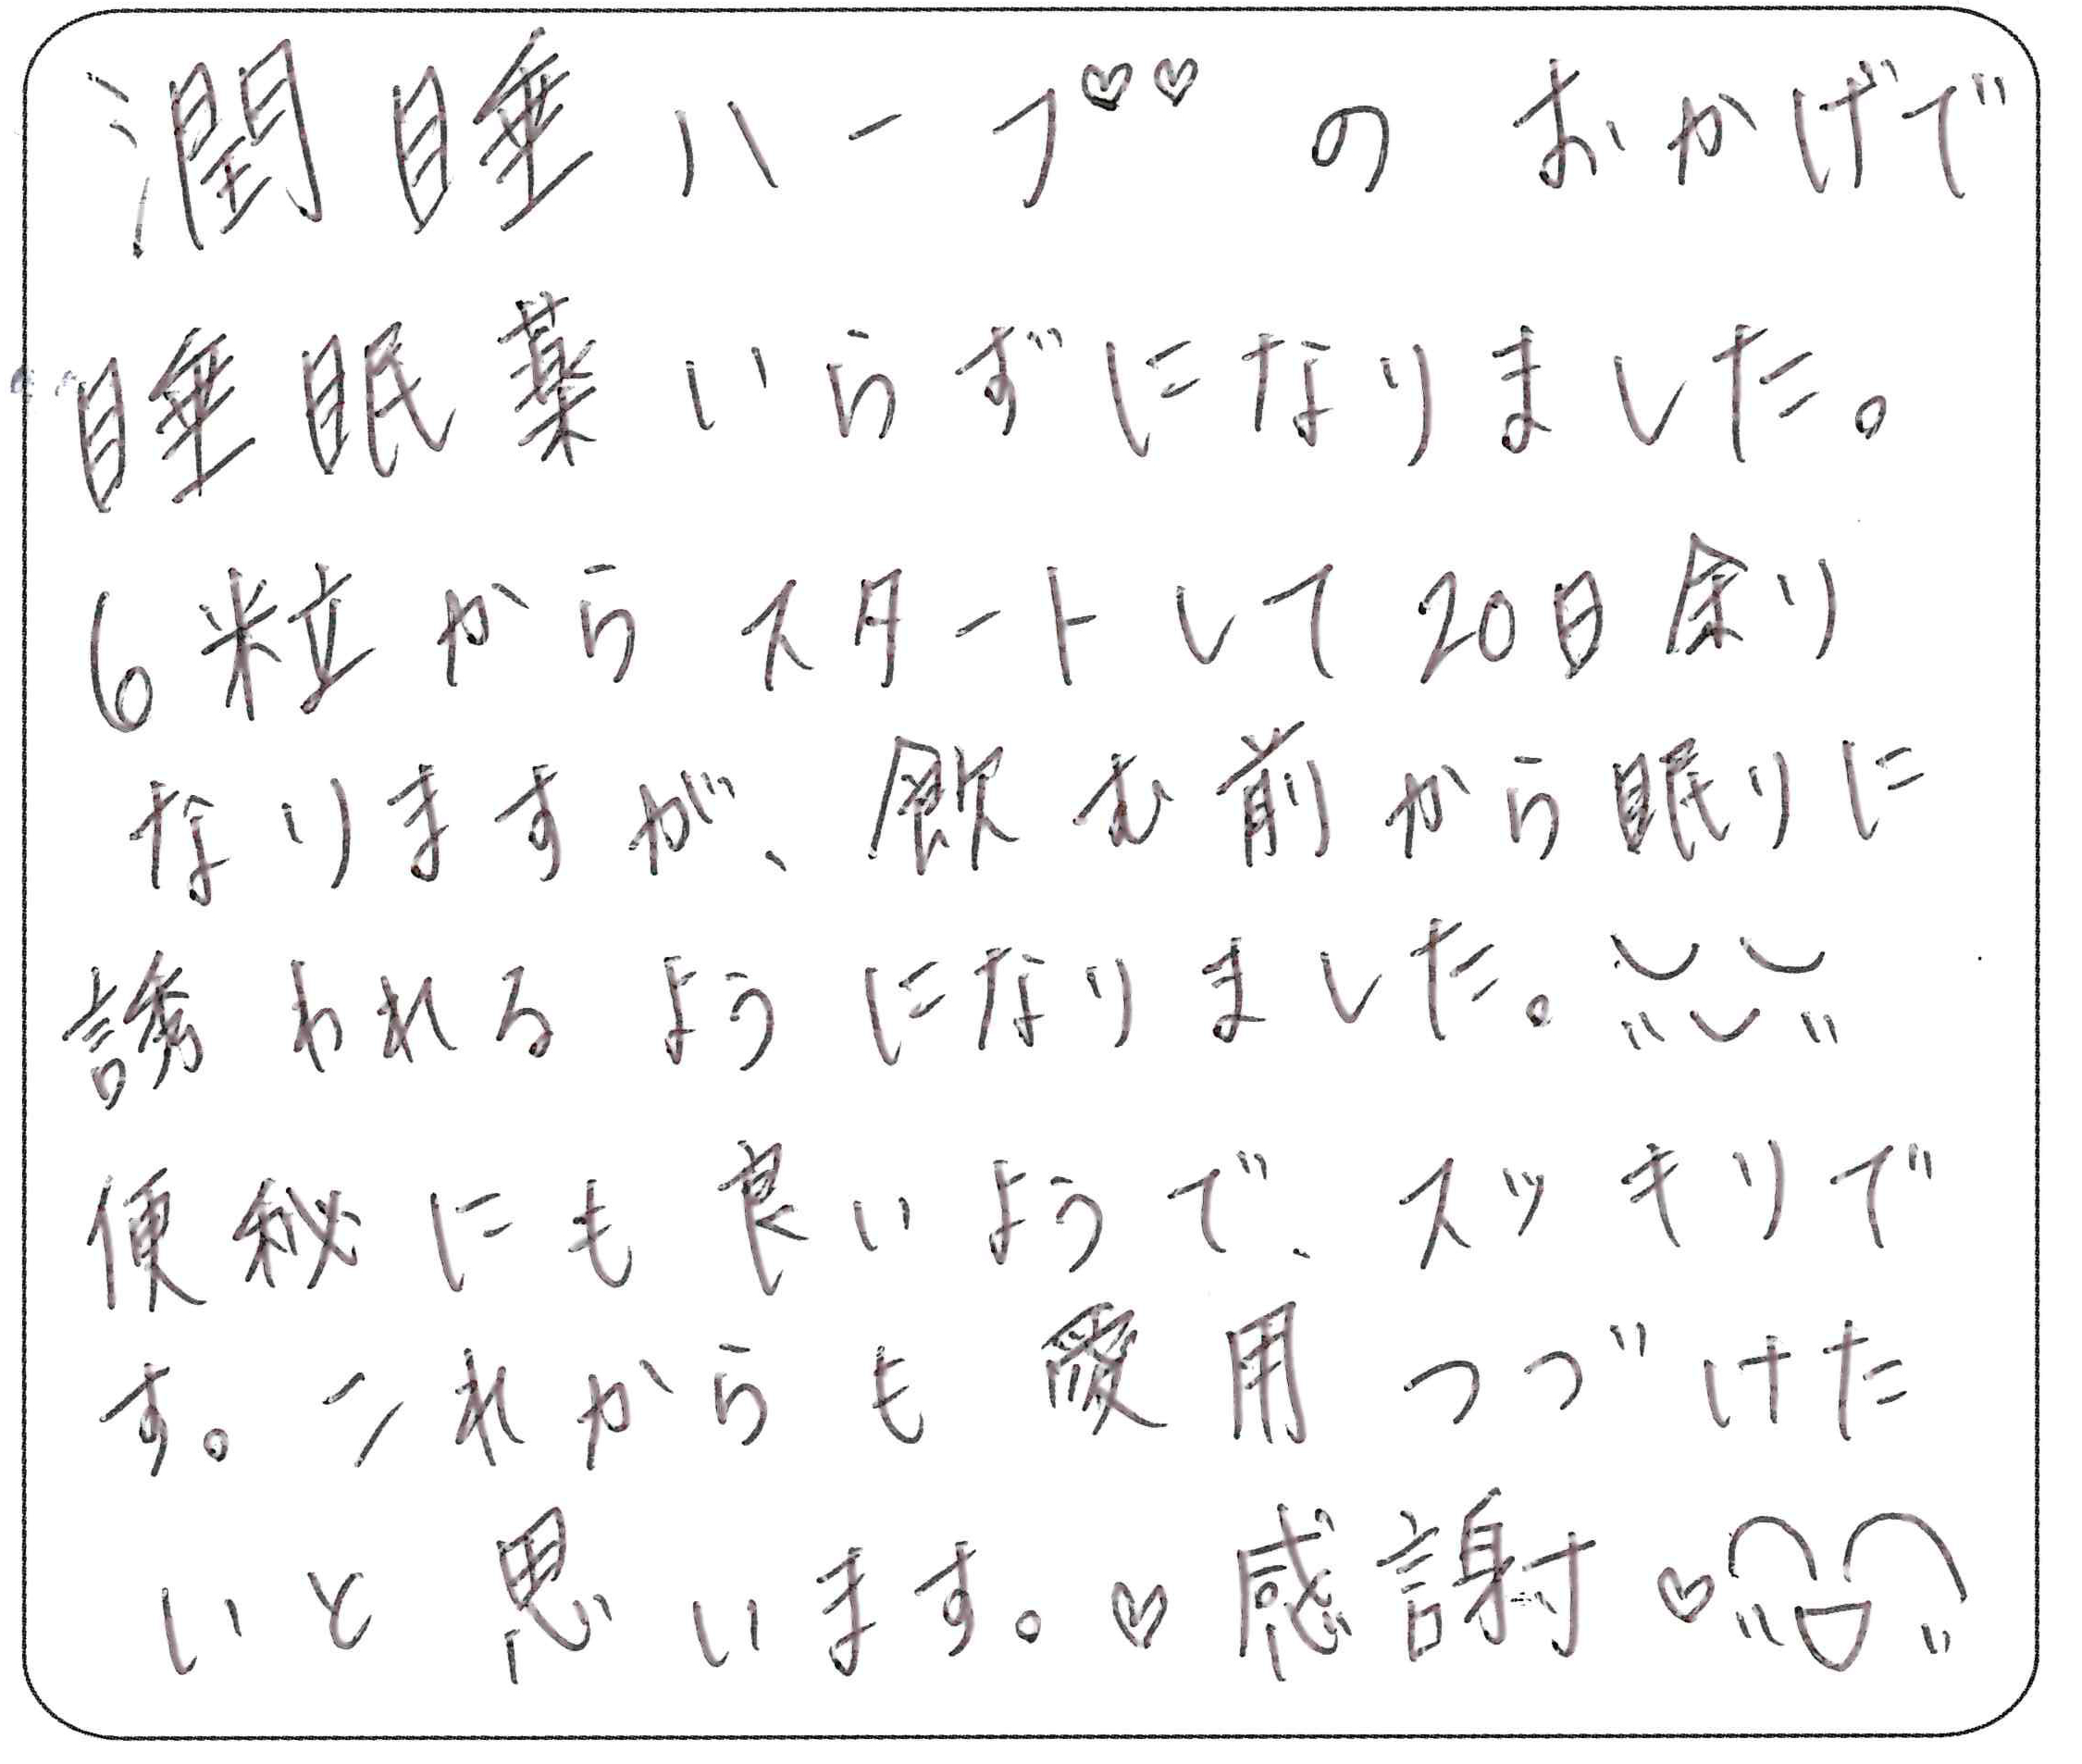 潤睡ハーブ♡♡のおかげで
睡眠薬いらずになりました。
6粒からスタートして20日余り
なりますが、飲む前から眠りに
誘われるようになりました。
便秘にも良いようで、スッキリで
す。これからも愛用つづけた
いと思います。♡感謝♡